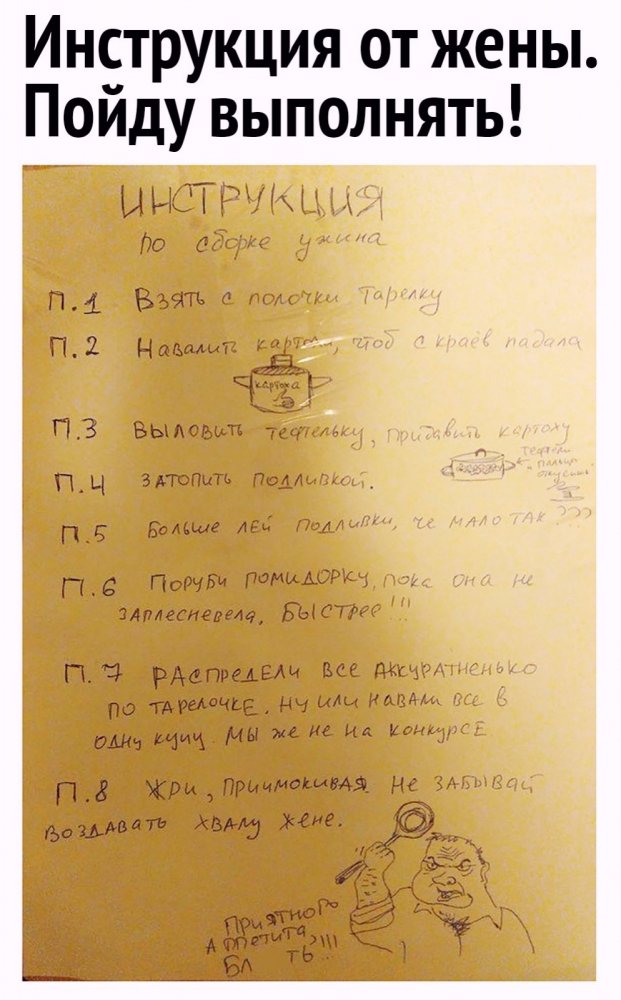 Инструкция от жены.
Пойду выполнять!
ИНСТРУКЦИЯ
по сборке ужина
П.1 Взять с полочки тарелку
П.2 Навалить картохи, чтоб с краёв падала
картоха
П.3 Выловить тефтельку, придавить картоху
тефтели
"пальцы
откусишь"
П.4 Затопить подливкой.
П.5 Больше лей подливки, че мало так???
П.6 Поруби помидорку, пока она не
заплесневела, быстрее!!!
П.7 Распредели все аккуратненько
по тарелочке. Ну или навали все в
одну кучу. Мы же не на конкурсе
П.8 Жри, причмокивая. Не забывай
воздавать хвалу жене.
Приятного
Аппетита,
Бл ть!!!